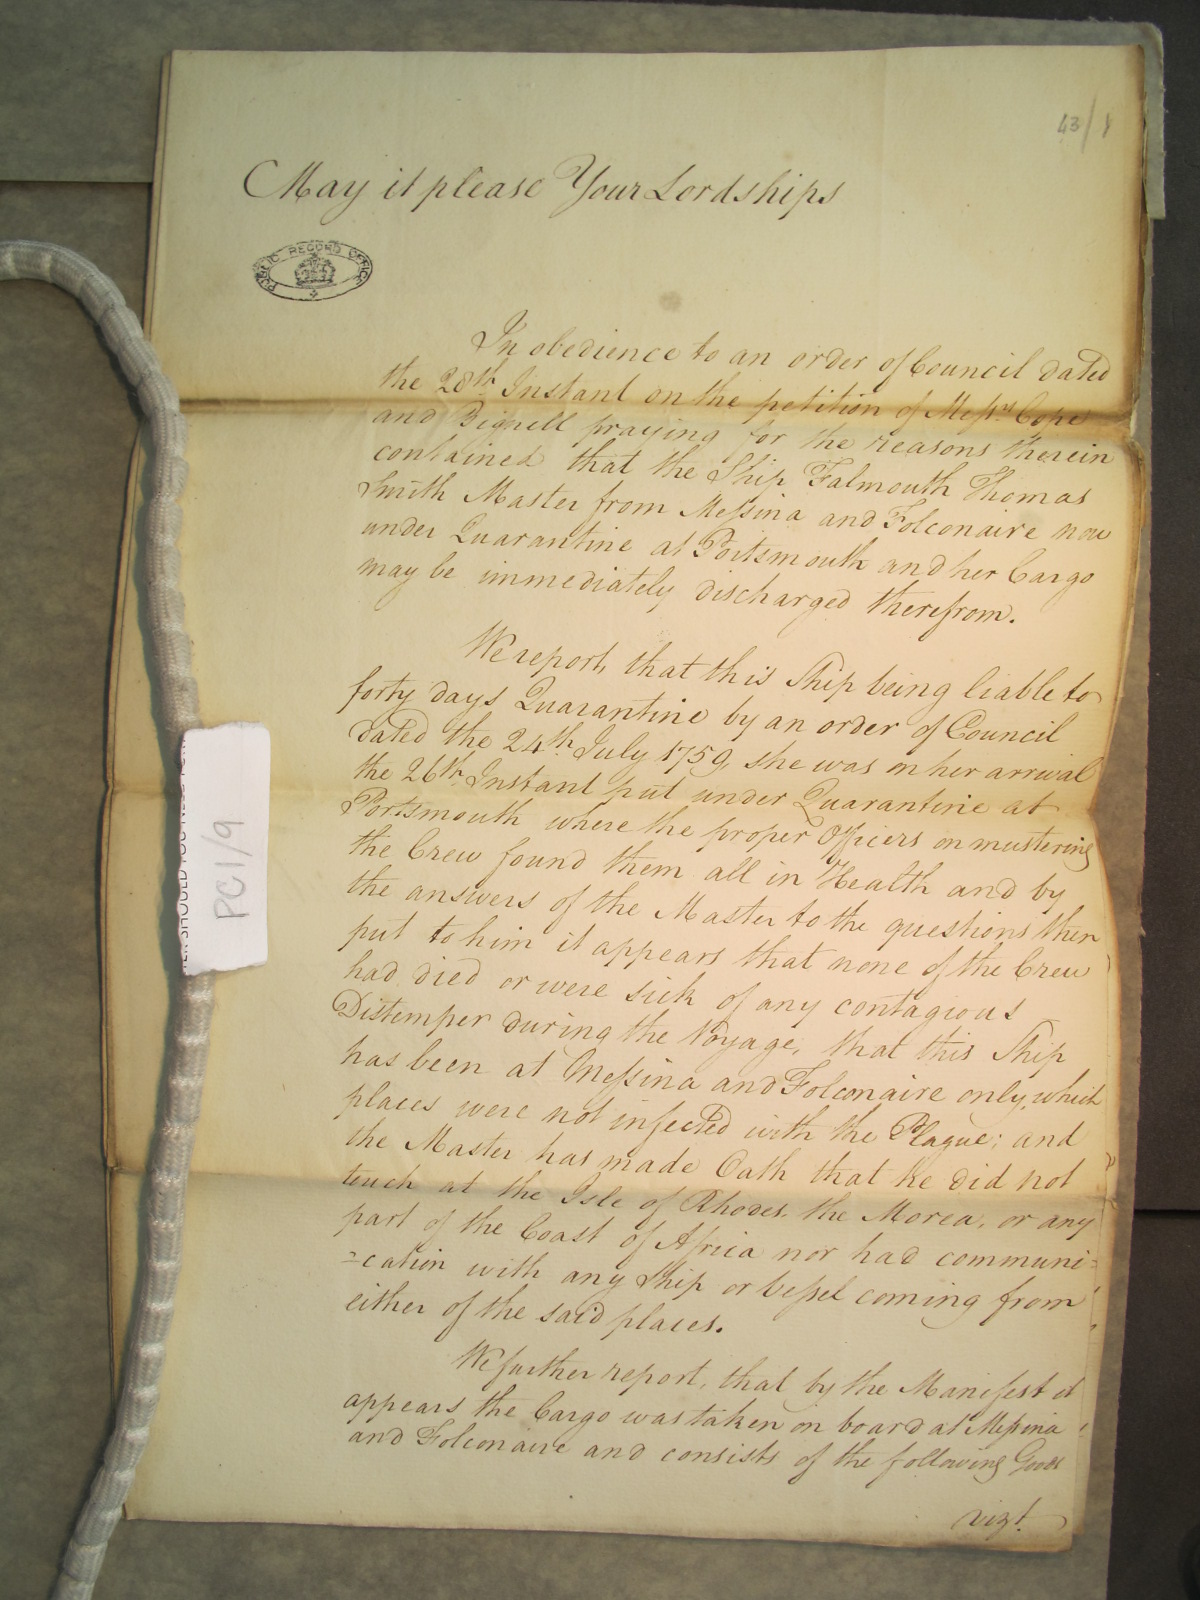 43/1
May it please Your Lordships
PUBLIC RECORD OFFICE
In obedience to an order of Council dated
the 28th. Instant on the petition of Messrs. Cope
and Bignell praying for the reasons therein
contained that the Ship Falmouth Thomas
Smith Master from Messina and Folconaire now
under Quarantine at Portsmouth and her Cargo
may be immediately discharged therefrom.
We report, that this Ship being liable to
forty days Quarantine by an order of Council
dated the 24th. July 1759, she was on her arrival
the 26th. Instant put under Quarantine at
Portsmouth where the proper Officers on mustering
the Crew found them all in Health and by
the answers of the Master to the questions then
put to him it appears that none of the Crew
had died or were sick of any contagious
Distemper during the Voyage, that this Ship
has been at Messina and Folconaire only, which
places were not infected with the Plague; and
the Master has made Oath that he did not
touch at the Isle of Rhodes, the Morea, or any
part of the Coast of Africa nor had communi=
=cation with any Ship or Vessel coming from
either of the said places.
We further report, that by the Manifest it
appears the Cargo was taken on board at Messina
and Folconaire and consists of the following Goods
vizt.
PC1/9
SHOULD YOU NEED